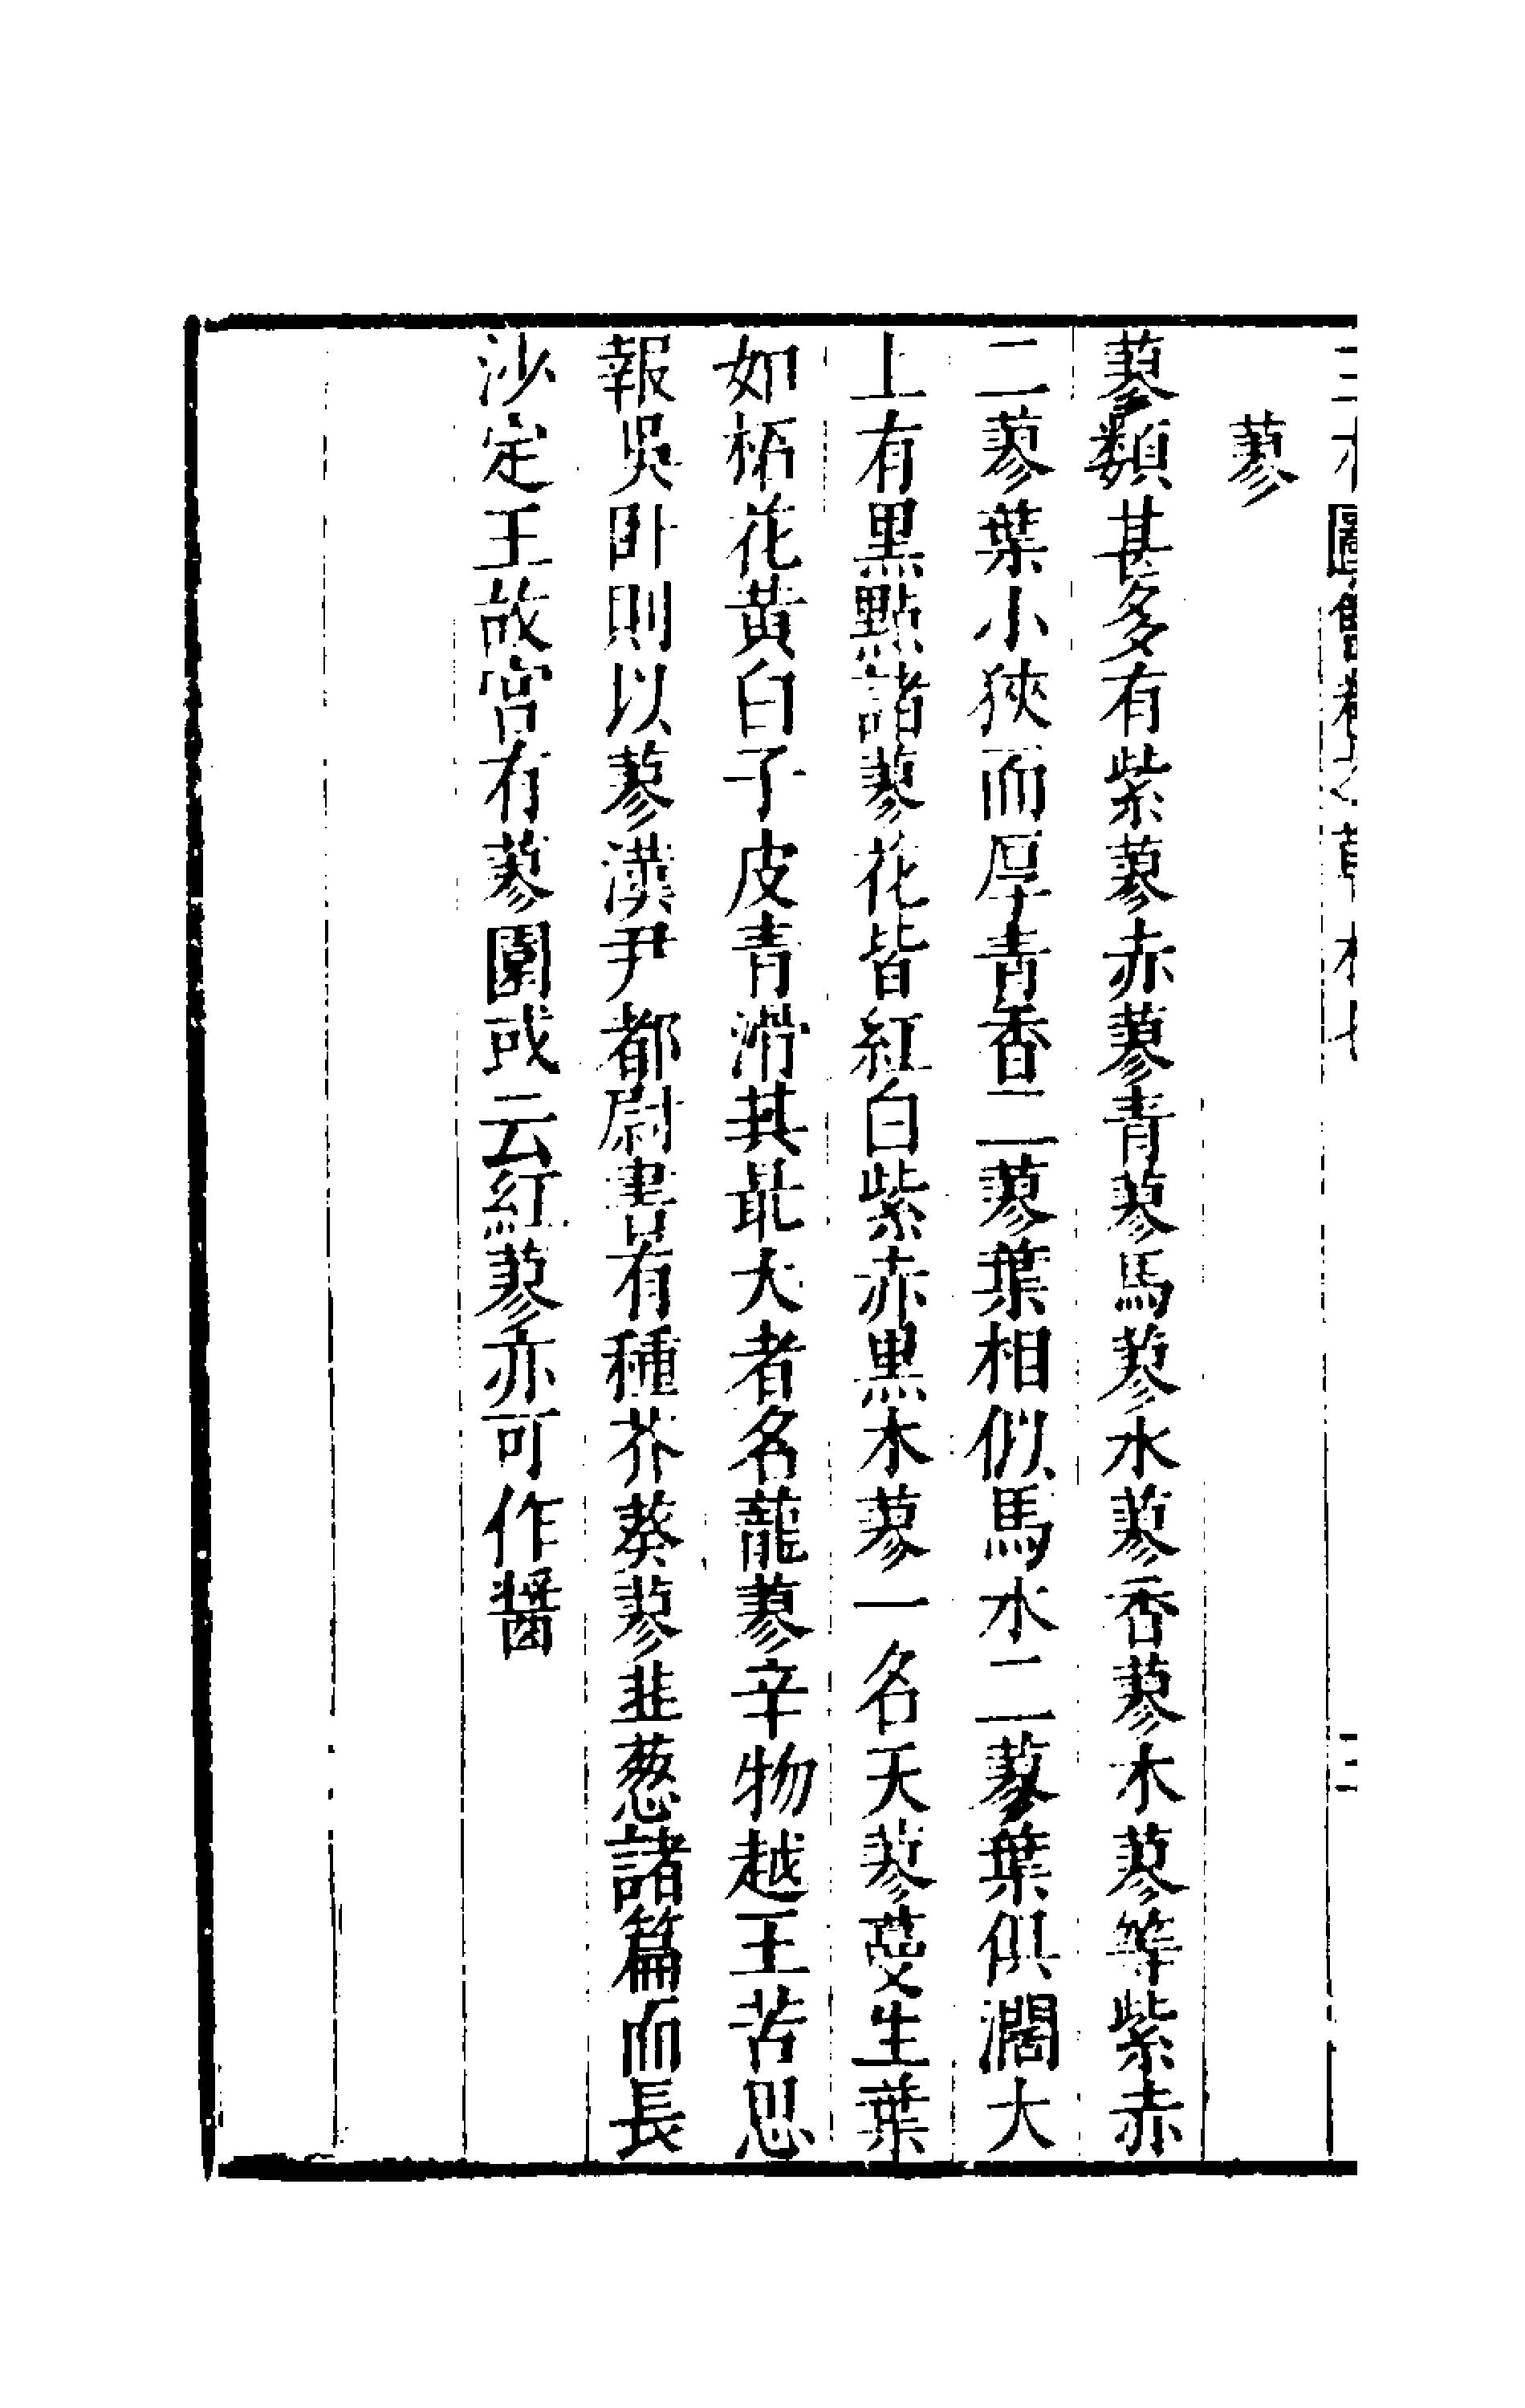 圖會
蓼
蓼類甚多有紫蓼赤蓼青蓼馬蓼水蓼香蓼木蓼等紫赤
二蓼葉小狹而厚青香二蓼葉相似馬水二蓼葉俱濶大
上有黑點諸蓼花皆紅白紫赤黑木蓼一名天蓼蔓生葉
如柘花黃白子皮青滑其最大者名蘢蓼辛物越王苦思
報吳卧則以蓼漢尹都尉書有種芥葵蓼韭葱諸篇而長
沙定王故宮有蓼園或云紅蓼亦可作醬